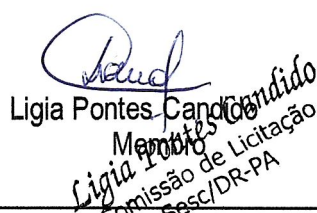 Ligia Pontes Candido
Membro
Ligia Pontes Candido
Comissão de Licitação
Sesc/DR-PA